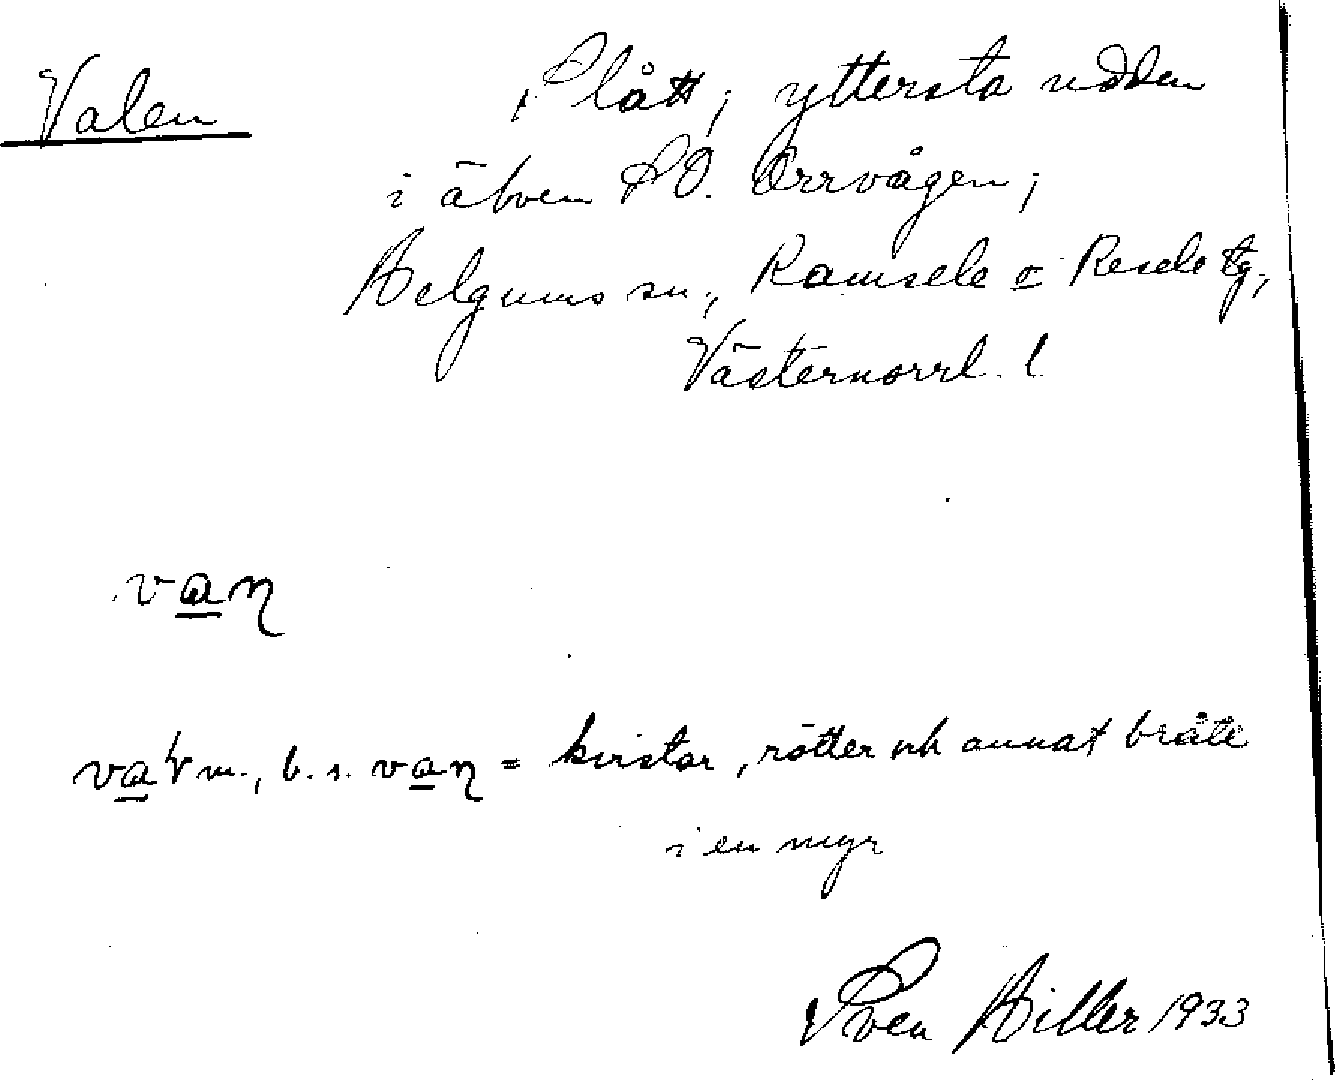 Valen Slått, yttersta udden
i älven SO. Orrvågen;
Helgums sn., Ramsele o Resele tg,
Västernorrl. l
van̥
vaɽ m., b. s. van̥ = kvistar, rötter och annat bråte
i en myr
Sven Hiller 1933